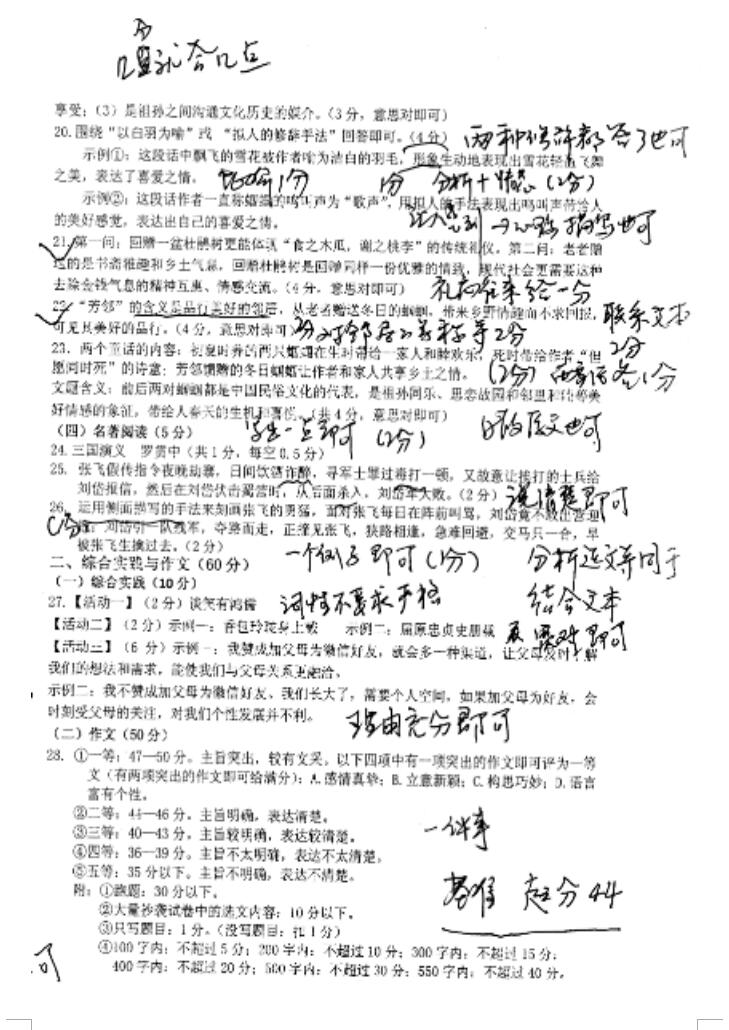 享受；（3）是祖孙之间沟通文化历史的媒介。（3分，意思对即可）
20.围绕“以白羽为喻”或“拟人的修辞手法”回答即可。（4分） 两种修辞都答了也可
示例①：这段话中飘飞的雪花被作者喻为洁白的羽毛，形象生动地表现出雪花轻盈飞舞
之美，表达了喜爱之情。 比喻1分 1分 分析+情感（2分）
示例②：这段话作者一直称蝈蝈的鸣叫声为“歌声”，用拟人的手法表现出鸣叫声带给人
的美好感觉，表达出自己的喜爱之情。
21.第一问：回赠一盆杜鹃树更能体现“食之木瓜，谢之桃李”的传统礼仪。第二问：老老赠
送的是书斋雅趣和乡土气息，回赠杜鹃树是回赠同样一份优雅的情致，现代社会更需要这种
去除金钱气息的精神互惠、情感交流。（4分，意思对即可） 礼尚往来给一分
22.“芳邻”的含义是品行美好的邻居，从老者赠送冬日的蝈蝈，带来乡野情趣而不求回报，
可见其美好的品行。（4分，意思对即可） 对邻居的美称等2分 联系文本
2分
23．两个童话的内容：初夏时养的两只蝈蝈在生时带给一家人和睦欢乐，死时带给作者“但
愿同时死”的诗意；芳邻馈赠的冬日蝈蝈让作者和家人共享乡土之情。（2分）
文题含义：前后两对蝈蝈都是中国民俗文化的代表，是祖孙同乐、思恋故园和邻里和睦等美
好情感的象征，带给人春天的生机和喜悦。（共4分，意思对即可）
（四）名著阅读（5分） 写出一点即可（2分）
24.三国演义 罗贯中（共1分，每空0.5分）
25．张飞假传指令夜晚劫寨，日间饮酒诈醉，寻军士罪过毒打一顿，又故意让挨打的士兵给
刘岱报信，然后在刘岱伏击蜀营时，从后面杀入，刘岱军大败。（2分） 说清楚即可
26．运用侧面描写的手法来刻画张飞的勇猛，面对张飞每日在阵前叫骂，刘岱竟不敢出营迎
刘岱引一队残军，夺路而走，正撞见张飞，狭路相逢，急难回避，交马只一合，早
被张飞生擒过去。（2分） 一个例子即可（1分） 分析
二、综合实践与作文（60分）
（一）综合实践（10分） 结合文本
27.【活动一】（2分）谈笑有鸿儒 词性不要求严格
【活动二】（2分）示例一：香包玲珑身上戴 示例二：屈原忠贞史册载
【活动三】（6分）示例一：我赞成加父母为微信好友，就会多一种渠道，让父母及时了解
我们的想法和需求，能使我们与父母关系更融洽。
示例二：我不赞成加父母为微信好友。我们长大了，需要个人空间，如果加父母为好友，会
时刻受父母的关注，对我们个性发展并不利。 理由充分即可
（二）作文（50分）
28．①一等：47—50分。主旨突出，较有文采。以下四项中有一项突出的作文即可评为一等
文（有两项突出的作文即可给满分）：A.感情真挚；B.立意新颖；C.构思巧妙；D.语言
富有个性。
②二等：44—46分。主旨明确，表达清楚。
③三等：40—43分。主旨较明确，表达较清楚。 一件事
④四等：36—39分。主旨不太明确，表达不太清楚。
⑤五等：35分以下。主旨不明确，表达不清楚。
附：①跑题：30分以下。 基准 起分44
②大量抄袭试卷中的选文内容：10分以下。
③只写题目：1分。（没写题目：扣1分）
④100字内：不超过5分；200字内：不超过10分；300字内：不超过15分；
400字内：不超过20分；500字内：不超过30分；550字内：不超过40分。
可